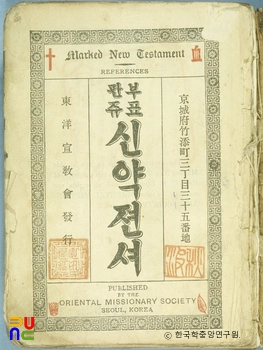 Marked New Testament
REFERENCES
부표
관쥬
신약젼셔
京城府竹添町三丁目三十五番地
東洋宣敎會發行
PUBLISHED
BY THE
ORIENTAL MISSIONARY SOCIETY
SEOUL, KOREA
ⓒ 한국학중앙연구원